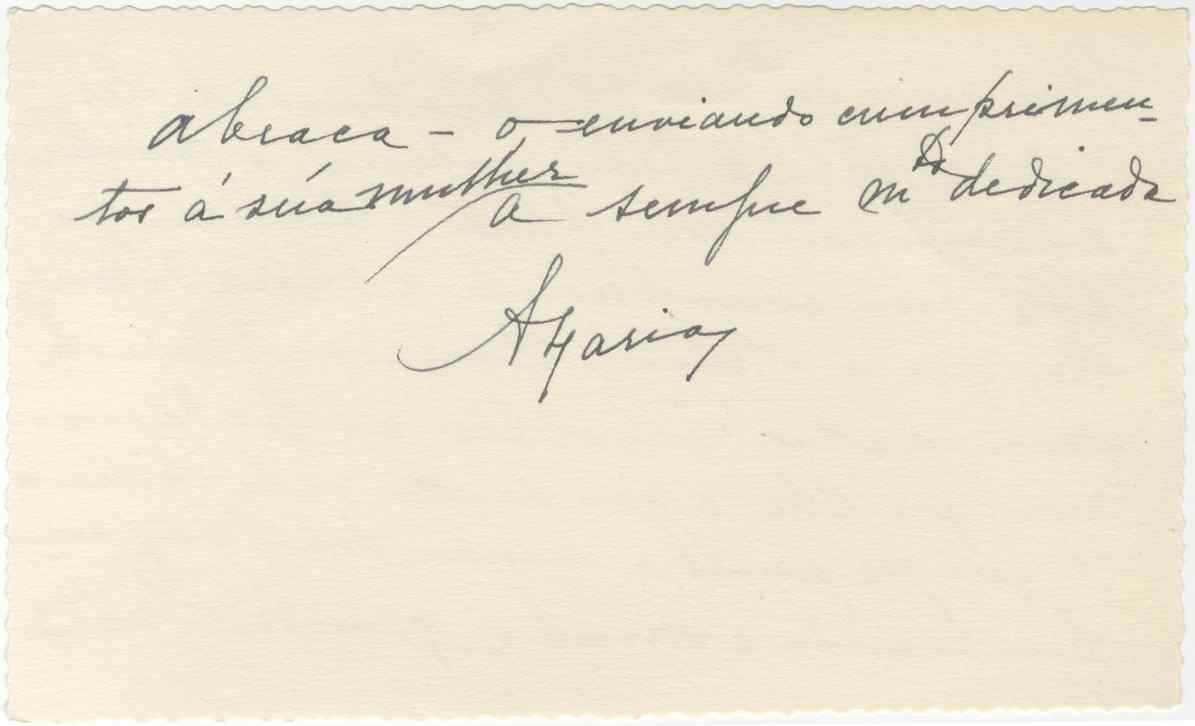 abraca - o enviando cumprimen-
tos á súa mulher
a sempre mto dedicada